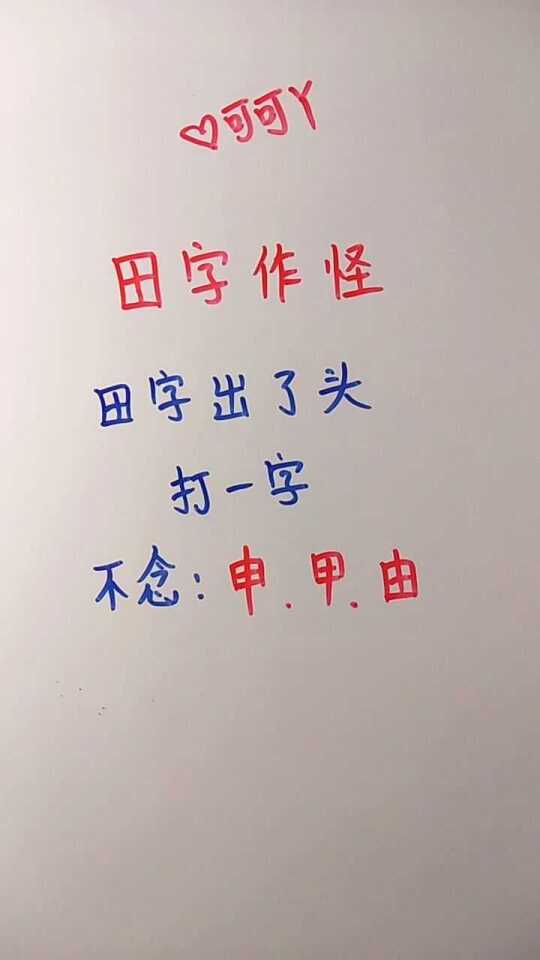 ♡可可丫
田字作怪
田字出了头
打一字
不念:申.甲.由